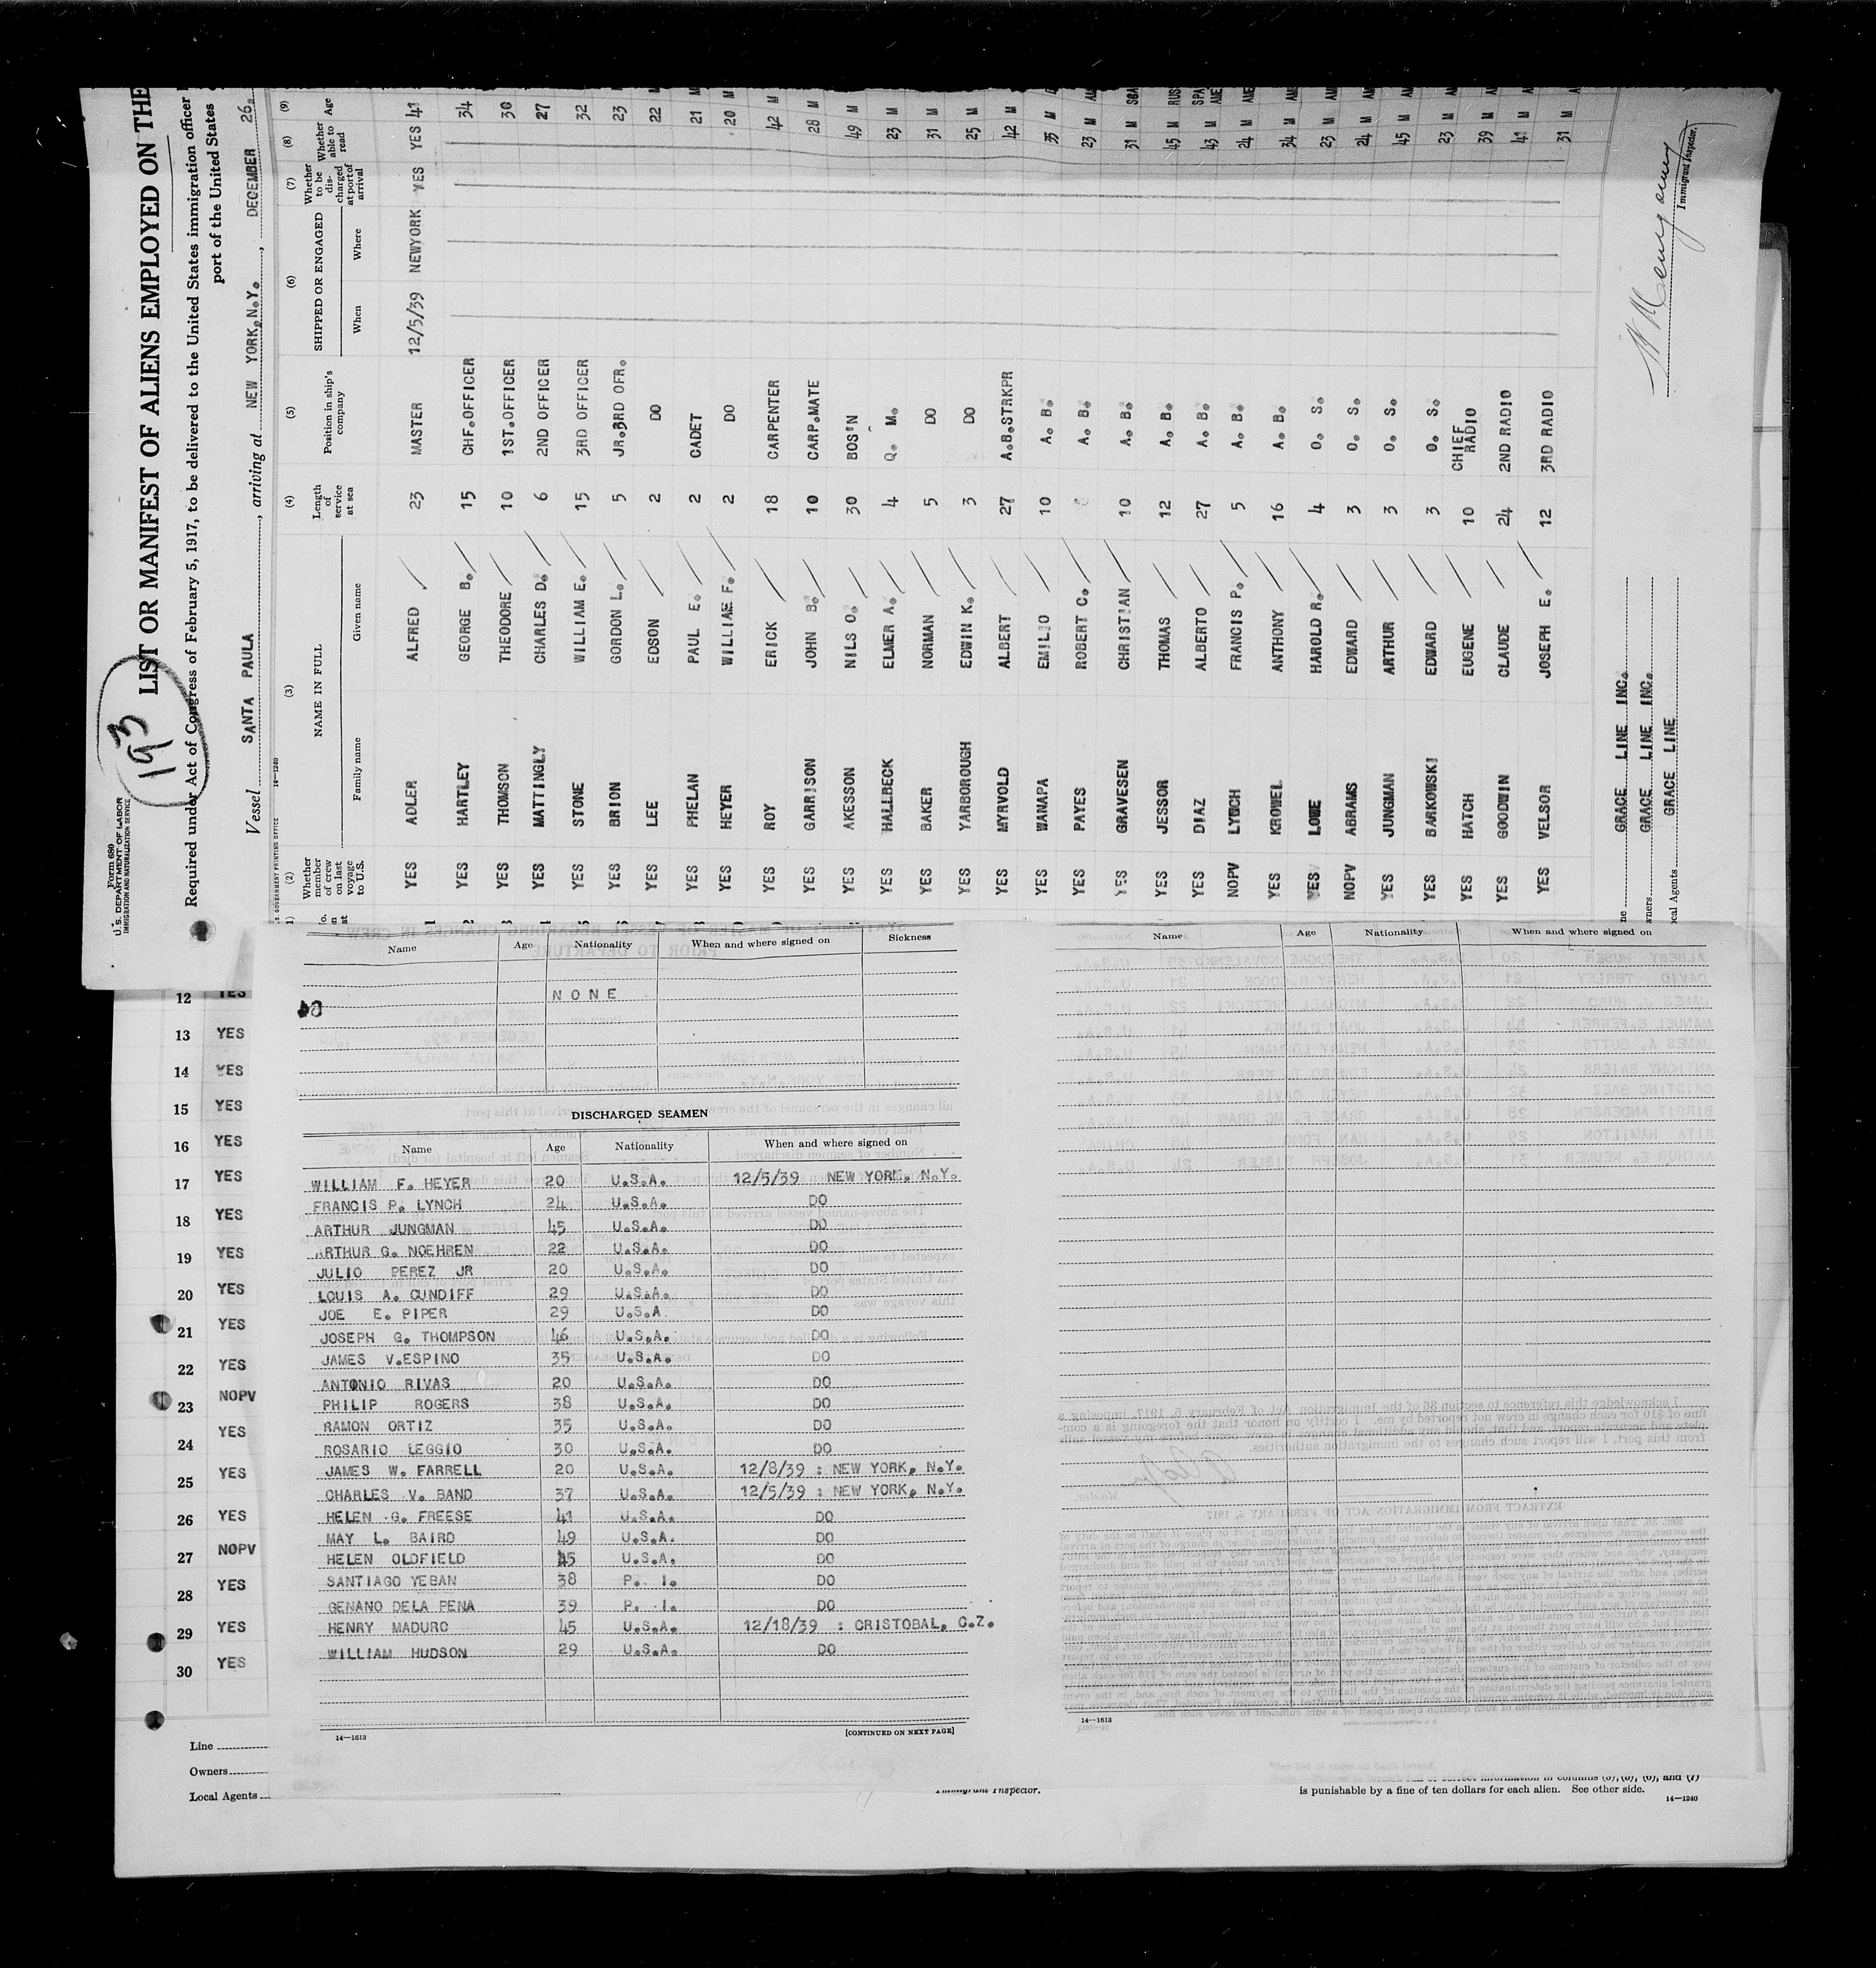 Form 680
U. S. DEPARTMENT OF LABOR
IMMIGRATION AND NATURALIZATION SERVICE
193
LIST OR MANIFEST OF ALIENS EMPLOYED ON THE
Required under Act of Congress of February 5, 1917, to be delivered to the United States immigration officer
port of the United States
Vessel SANTA PAULA, arriving at NEW YORK, N.Y., DECEMBER 26,
GOVERNMENT PRINTING OFFICE 14-1240
(2) (3) (4) (5) (6) (7) (8) (9)
Whether member of crew on last voyage to U.S. NAME IN FULL Length of service at sea Position in ship's company SHIPPED OR ENGAGED Whether to be discharged at port of arrival Whether able to read Age
Family name Given name When Where
1 YES ADLER ALFRED 23 MASTER 12/5/39 NEWYORK YES YES 41
2 YES HARTLEY GEORGE B. 15 CHF.OFFICER 34
3 YES THOMSON THEODORE 10 1ST.OFFICER 30
4 YES MATTINGLY CHARLES D. 6 2ND OFFICER 27
5 YES STONE WILLIAM E. 15 3RD OFFICER 32
6 YES BRION GORDON L. 5 JR.3RD OFR. 23
7 YES LEE EDSON 2 DO 22 M
8 YES PHELAN PAUL E. 2 CADET 21 M
YES HEYER WILLIAM F. 2 DO 20 M
YES ROY ERICK 18 CARPENTER 42 M
YES GARRISON JOHN B. 10 CARP.MATE 28 M
YES AKESSON NILS O. 30 BOS'N 49 M
YES HALLBECK ELMER A. 4 Q. M. 23 M
YES BAKER NORMAN 5 DO 31 M
YES YARBOROUGH EDWIN K. 3 DO 25 M
YES MYRVOLD ALBERT 27 A.B.STRKPR 42 M
YES WANAPA EMILIO 10 A. B. 35 M
YES PAYES ROBERT C. A. B. 23 M
YES GRAVESEN CHRISTIAN 10 A. B. 31 M
YES JESSOR THOMAS 12 A. B. 45 M RUS
YES DIAZ ALBERTO 27 A. B. 43 M SPA AME
NOPV LYNCH FRANCIS P. 5 A. B. 24 M AME
YES KROWEL ANTHONY 16 A. B. 34 M AME
YES LOWE HAROLD R. 4 O. S. 23 M
NOPV ABRAMS EDWARD 3 O. S. 24 M
YES JUNGMAN ARTHUR 3 O. S. 45 M
YES BARKOWSKI EDWARD 3 O. S. 23 M
YES HATCH EUGENE 10 CHIEF RADIO 39 M
YES GOODWIN CLAUDE 24 2ND RADIO 41 M
YES VELSOR JOSEPH E. 12 3RD RADIO 31 M
GRACE LINE INC.
GRACE LINE INC.
cal Agents GRACE LINE
Immigrant Inspector.
Name Age Nationality When and where signed on Sickness
NONE
DISCHARGED SEAMEN
Name Age Nationality When and where signed on
WILLIAM F. HEYER 20 U.S.A. 12/5/39 NEW YORK. N.Y.
FRANCIS P. LYNCH 24 U.S.A. DO
ARTHUR JUNGMAN 45 U.S.A. DO
ARTHUR G. NOEHREN 22 U.S.A. DO
JULIO PEREZ JR 20 U.S.A. DO
LOUIS A. CUNDIFF 29 U.S.A. DO
JOE E. PIPER 29 U.S.A DO
JOSEPH G. THOMPSON 46 U.S.A. DO
JAMES V.ESPINO 35 U.S.A. DO
ANTONIO RIVAS 20 U.S.A. DO
PHILIP ROGERS 38 U.S.A. DO
RAMON ORTIZ 35 U.S.A. DO
ROSARIO LEGGIO 30 U.S.A. DO
JAMES W. FARRELL 20 U.S.A. 12/8/39 : NEW YORK, N.Y.
CHARLES V. BAND 37 U.S.A. 12/5/39 : NEW YORK, N.Y.
HELEN G. FREESE 41 U.S.A. DO
MAY L. BAIRD 49 U.S.A. DO
HELEN OLDFIELD 45 U.S.A. DO
SANTIAGO YEBAN 38 P. I. DO
GENANO DELA PENA 39 P. I. DO
HENRY MADURO 45 U.S.A. 12/18/39 : CRISTOBAL, C.Z.
WILLIAM HUDSON 29 U.S.A. DO
14-1613
[CONTINUED ON NEXT PAGE]
Name Age Nationality When and where signed on
14-1613
12 YES
13 YES
14 YES
15 YES
16 YES
17 YES
18 YES
19 YES
20 YES
21 YES
22 YES
23 NOPV
24 YES
25 YES
26 YES
27 NOPV
28 YES
29 YES
30 YES
Line
Owners
Local Agents
Immigrant Inspector.
is punishable by a fine of ten dollars for each alien. See other side.
14-1240